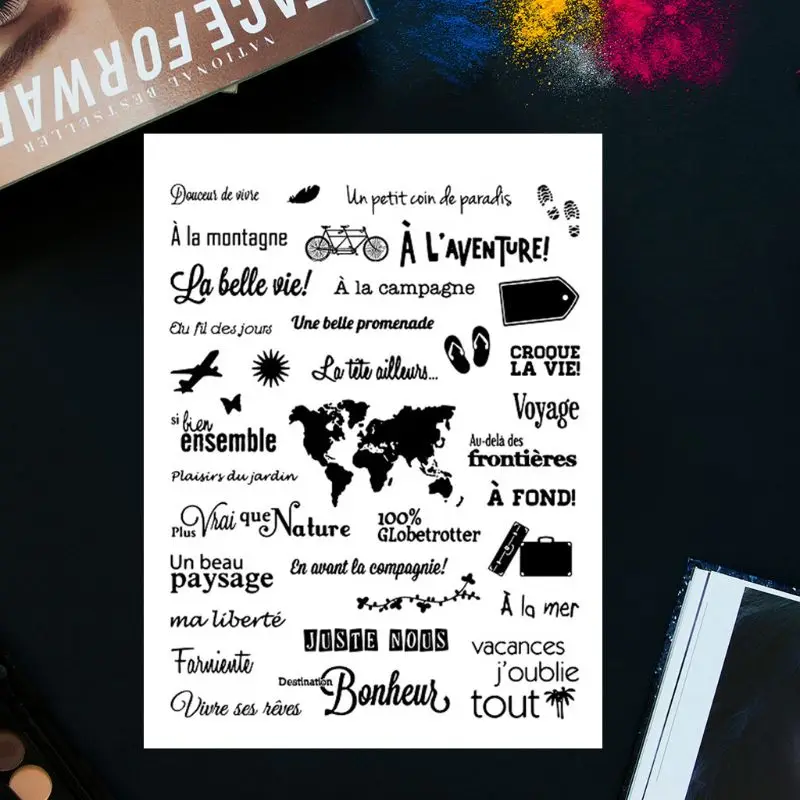 FACE FORWAR
NATIONAL BESTSELLER
Douceur de vivre
Un petit coin de paradis
À la montagne
À L'AVENTURE!
La belle vie!
À la campagne
Au fil des jours
Une belle promenade
La tête ailleurs...
CROQUE
LA VIE!
Voyage
si bien
ensemble
Au-delà des
frontières
Plaisirs du jardin
À FOND!
Plus Vrai que Nature
100%
GLobetrotter
Un beau
paysage
En avant la compagnie!
À la mer
ma liberté
JUSTE NOUS
vacances
j'oublie
tout
Farniente
Destination
Bonheur
Vivre ses rêves